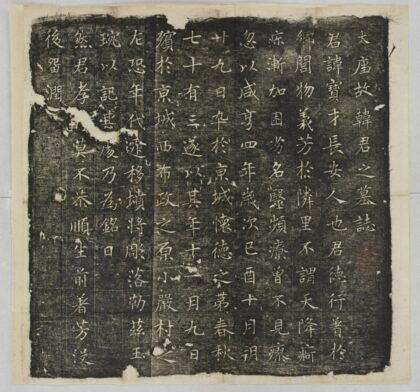 大唐故韓君之墓誌
君諱寶才長安人也君德行普於
鄉閭物義芳於隣里不謂天降
疾漸加困劣名醫頻療曾不見瘳
忽以咸亨四年歲次己酉十月朔
廿九日卒於京城懷德之第春秋
七十有三遂以其年十一月九日
殯於京城西布政之原小嚴村之
左恐年代遷移墳將彫落勒茲玉
琬以記其處乃為銘曰
然君孝 莫不恭順生前著芳沒
後留潤